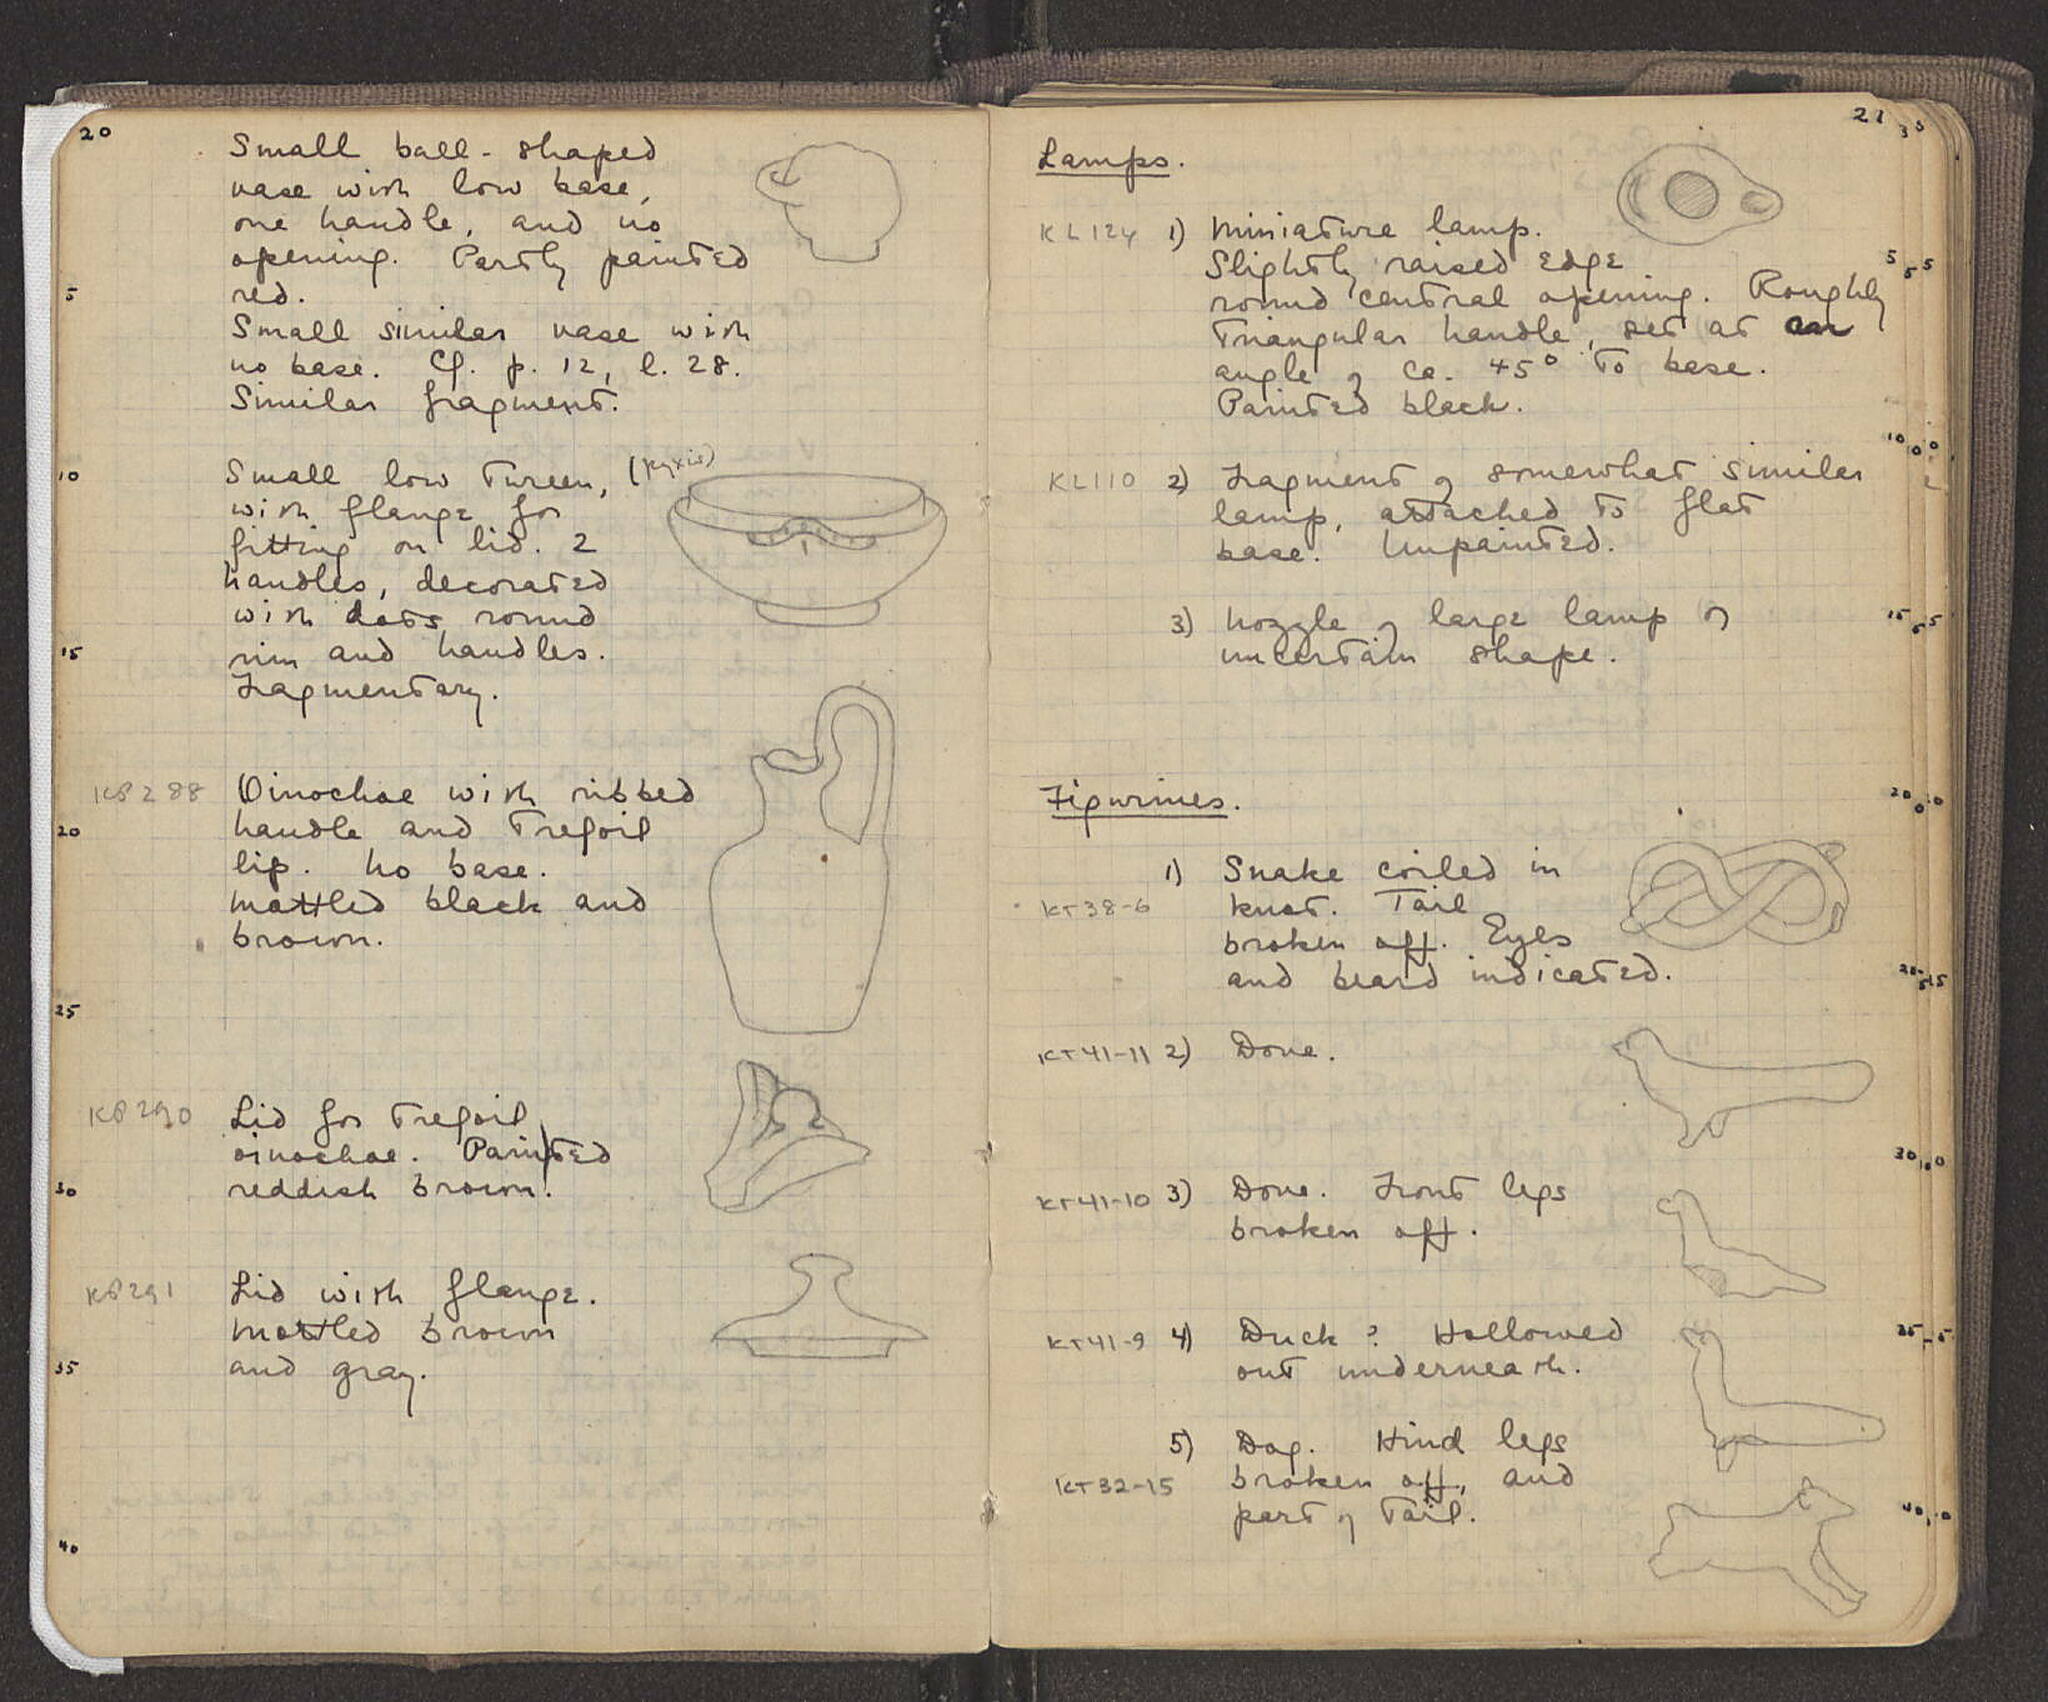 20
Small ball-shaped
vase with low base,
one handle, and no
opening. Partly painted
5 red.
Small similar vase with
no base. Cf. p. 12, l. 28.
Similar fragment.
10 Small low tureen, (pyxis)
with flange for
fitting on lid. 2
handles, decorated
with dots round
15 rim and handles.
Fragmentary.
KP288 Oinochoe with ribbed
20 handle and trefoil
lip. No base.
Mottled black and
brown.
25
KP290 Lid for trefoil
oinochoe. Painted
30 reddish brown.
KP291 Lid with flange.
Mottled brown
35 and gray.
40
21
Lamps.
KL124 1) Miniature lamp.
Slightly raised edge 5
round central opening. Roughly
triangular handle, set at an
angle of ca. 45° to base.
Painted black.
10
KL110 2) Fragment of somewhat similar
lamp, attached to flat
base. Unpainted.
3) Nozzle of large lamp of 15
uncertain shape.
Figurines. 20
1) Snake coiled in
KT38-6 knot. Tail
broken off. Eyes
and beard indicated. 25
KT41-11 2) Dove.
30
KT41-10 3) Dove. Front legs
broken off.
KT41-9 4) Duck? Hollowed 35
out underneath.
5) Dog. Hind legs
KT32-15 broken off, and
part of tail. 40